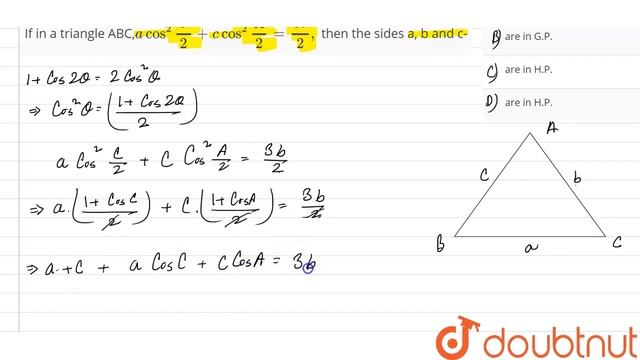 If in a triangle ABC, a cos² /2 + c cos² /2 = /2, then the sides a, b and c-
B) are in G.P.
C) are in H.P.
D) are in H.P.
1 + Cos 2θ = 2 Cos²θ
⇒ Cos²θ = (1 + Cos 2θ / 2)
a Cos² C/2 + C Cos² A/2 = 3b/2
⇒ a. (1 + Cos C / 2) + C. (1 + Cos A / 2) = 3b/2
⇒ a + C + a Cos C + C Cos A = 3b
A
C
b
B
a
C
doubtnut